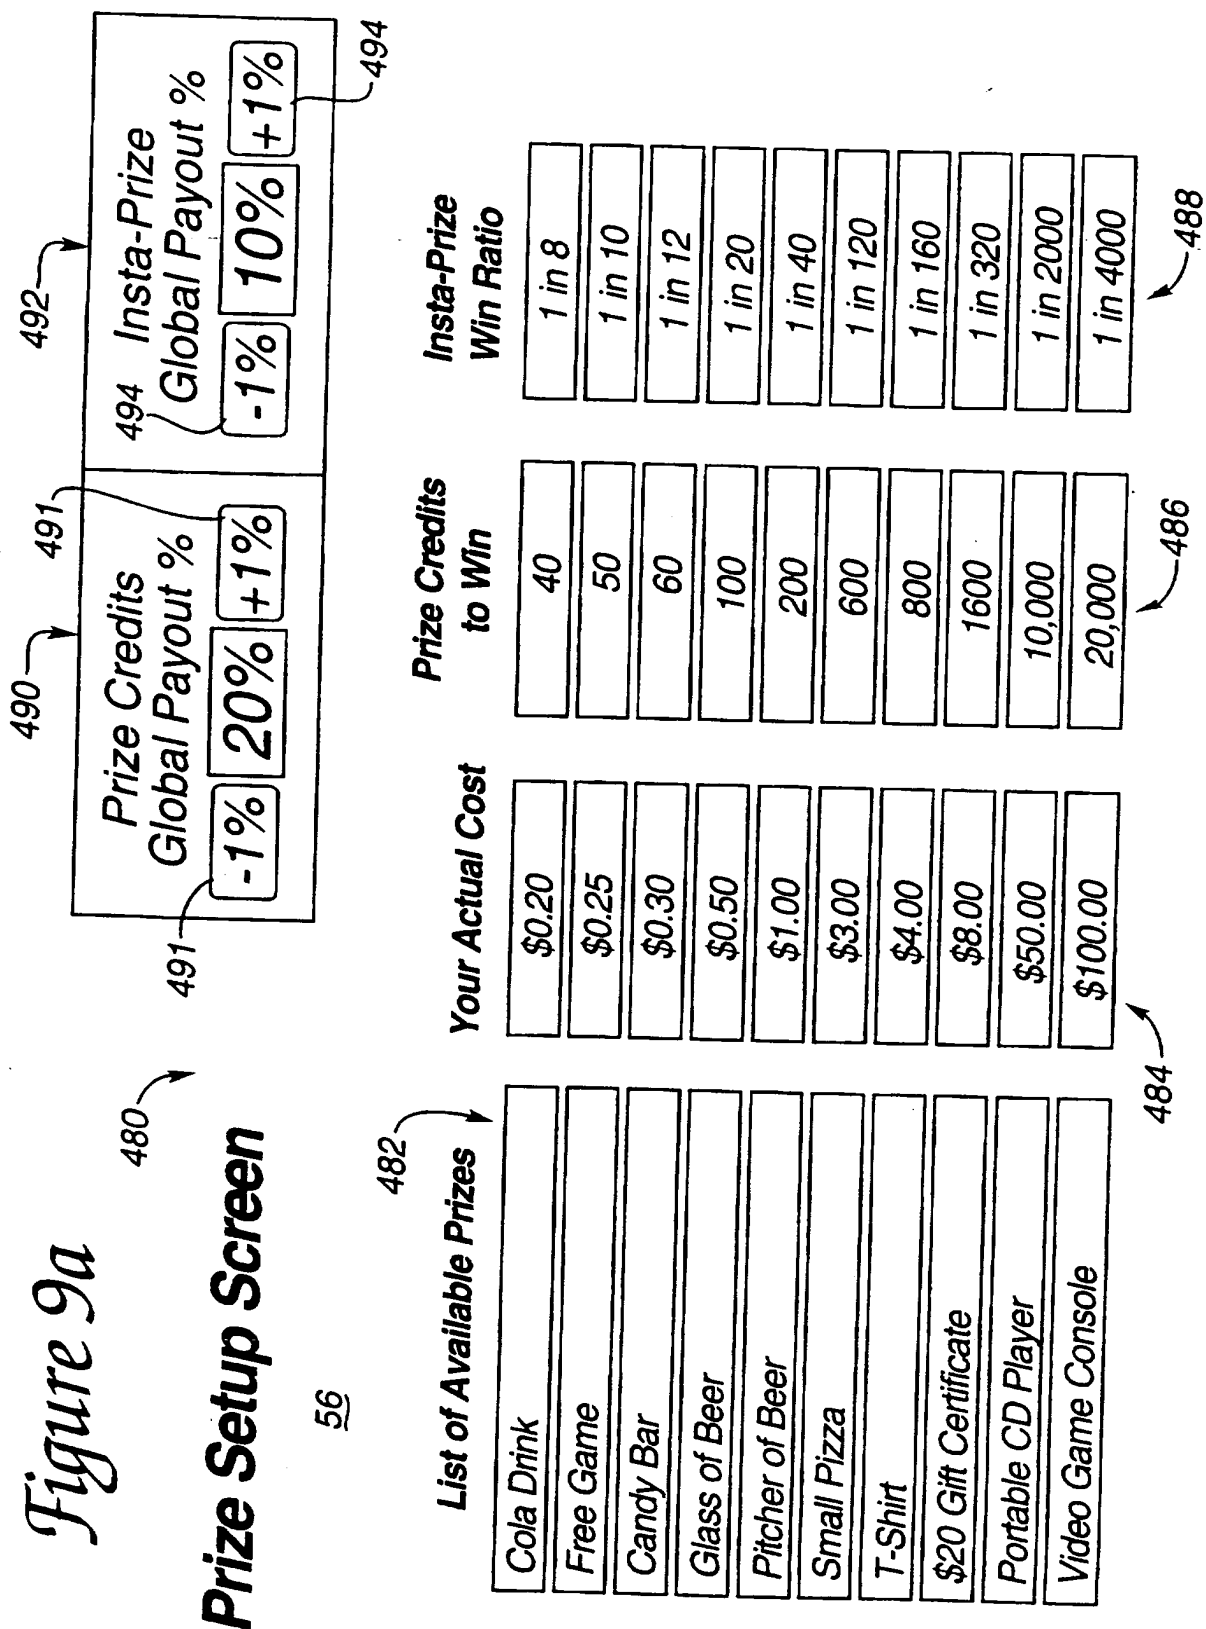 Figure 9a
Prize Setup Screen
480
56
490
492
Prize Credits
Global Payout %
491
-1%
20%
+1%
491
Insta-Prize
Global Payout %
494
-1%
10%
+1%
494
482
List of Available Prizes
Your Actual Cost
Prize Credits
to Win
Insta-Prize
Win Ratio
Cola Drink $0.20 40 1 in 8
Free Game $0.25 50 1 in 10
Candy Bar $0.30 60 1 in 12
Glass of Beer $0.50 100 1 in 20
Pitcher of Beer $1.00 200 1 in 40
Small Pizza $3.00 600 1 in 120
T-Shirt $4.00 800 1 in 160
$20 Gift Certificate $8.00 1600 1 in 320
Portable CD Player $50.00 10,000 1 in 2000
Video Game Console $100.00 20,000 1 in 4000
484
486
488